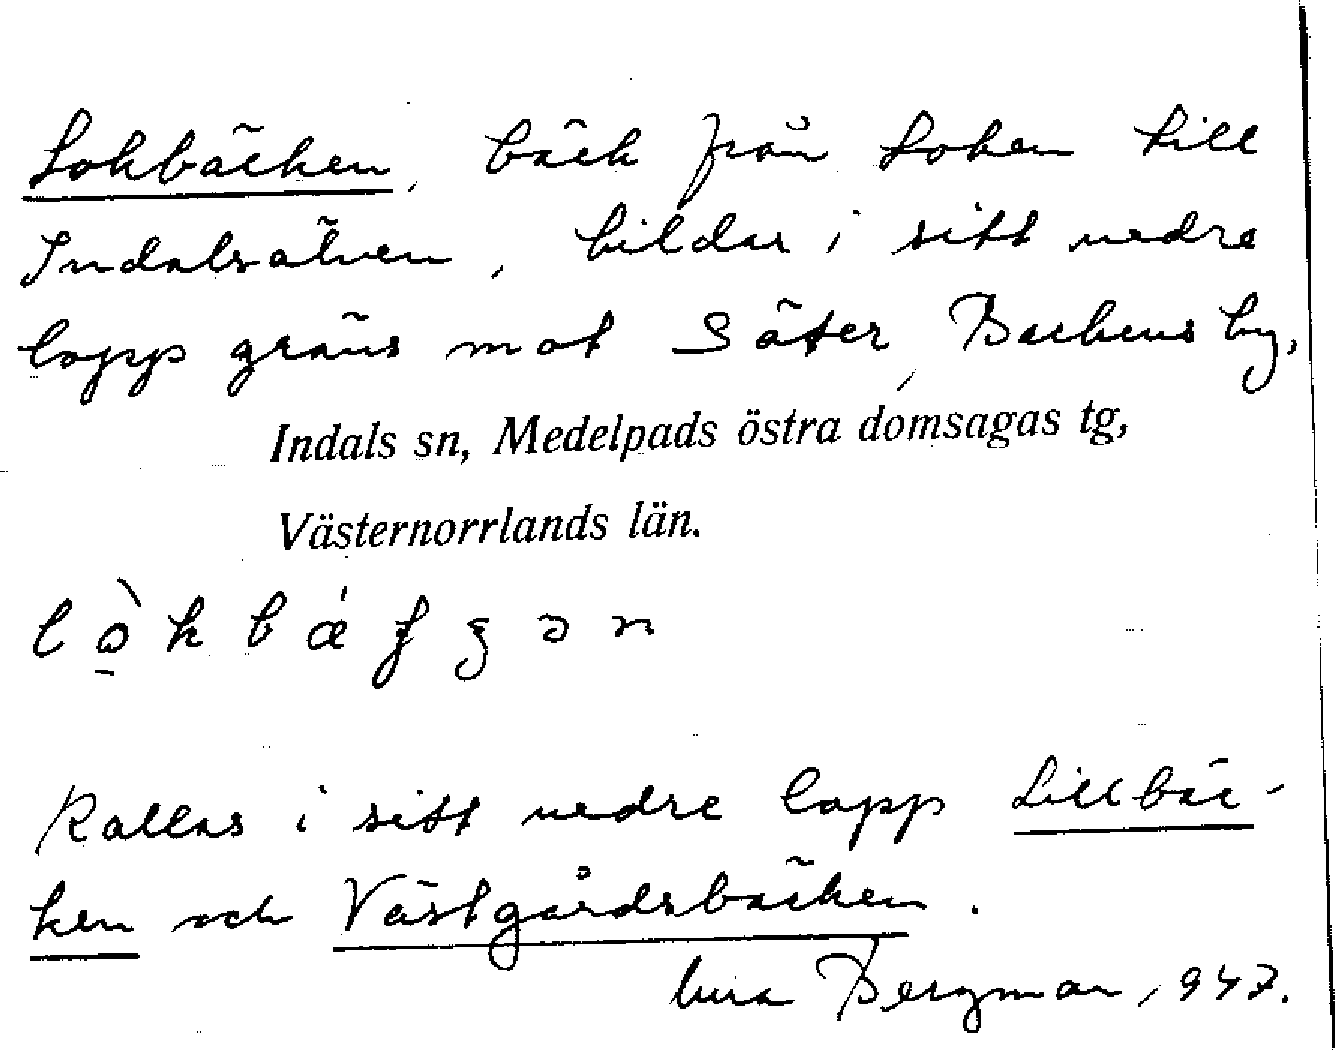 Lokbäcken, bäck från Loken till
Indalsälven, bildar i sitt nedre
lopp gräns mot Säter, Backens by,
Indals sn, Medelpads östra domsagas tg,
Västernorrlands län.
Kallas i sitt nedre lopp Lillbäc-
ken och Västgårdsbäcken.
Bergman, 947.